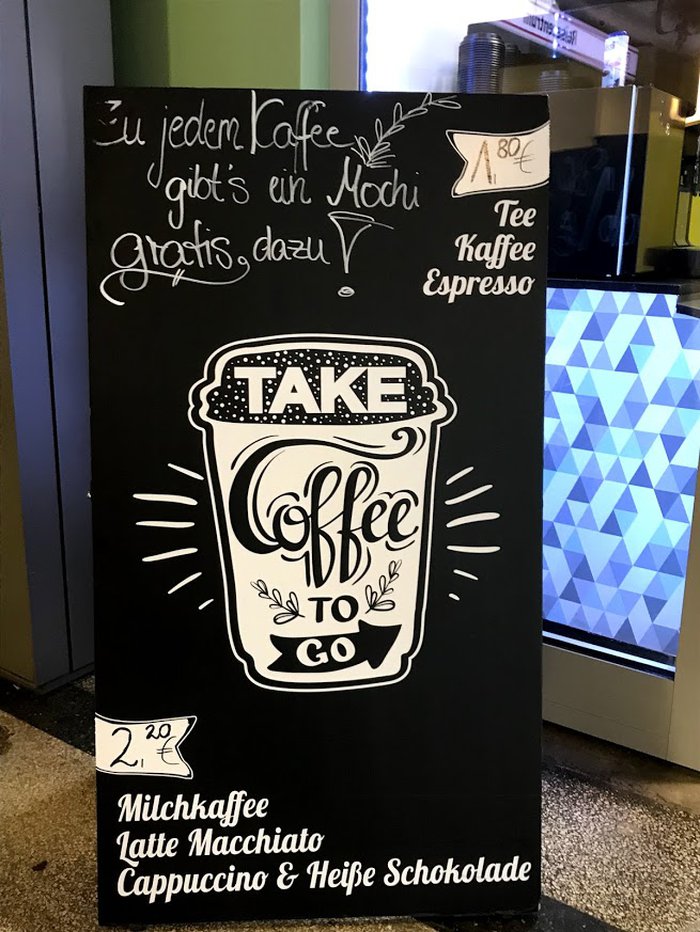 Zu jedem Kaffee
gibt's ein Mochi
gratis dazu!
1,80€
Tee
Kaffee
Espresso
TAKE
Coffee
TO
GO
2,20€
Milchkaffee
Latte Macchiato
Cappuccino & Heiße Schokolade
Reisezentrum